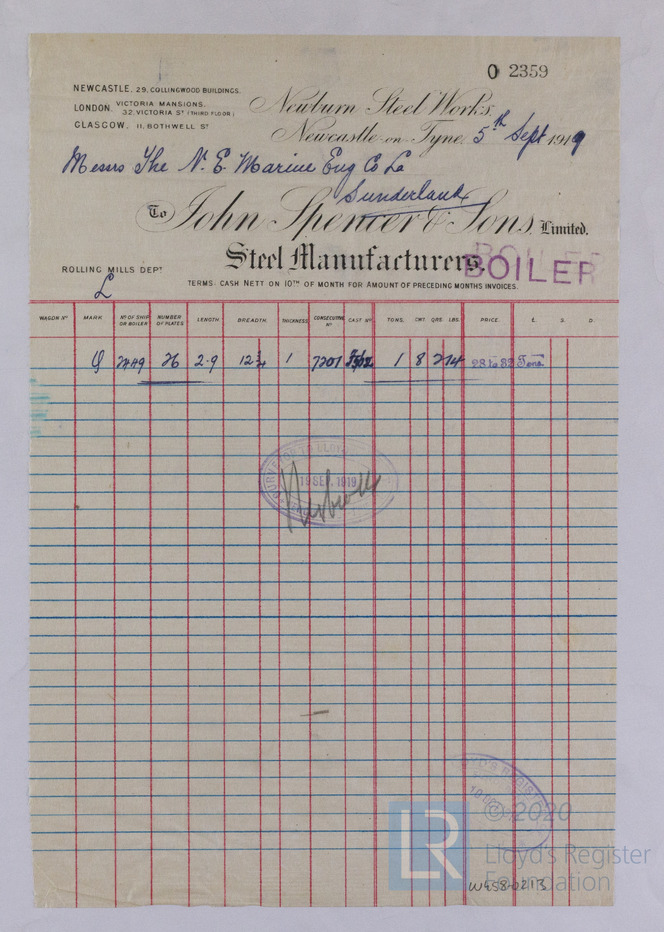 O 2359
NEWCASTLE. 29, COLLINGWOOD BUILDINGS.
LONDON. VICTORIA MANSIONS.
32, VICTORIA ST (THIRD FLOOR)
GLASGOW. 11, BOTHWELL ST
Newburn Steel Works,
Newcastle-on-Tyne, 5th Sept 1919
Messrs The N. E. Marine Eng Co Ld
Sunderland
To John Spencer & Sons, Limited.
Steel Manufacturers.
BOILER
BOILER
ROLLING MILLS DEPT
L
TERMS: CASH NETT ON 10TH OF MONTH FOR AMOUNT OF PRECEDING MONTHS INVOICES.
WAGON No MARK No OF SHIP OR BOILER NUMBER OF PLATES LENGTH BREADTH THICKNESS CONSECUTIVE No CAST No TONS. CWT. QRS. LBS. PRICE. £. S. D.
2449 26 2-9 12 3/4 1 7201 1 8 2 14 28 to 32 Tons
SURVEYOR TO LLOYD'S
19 SEP. 1919
LLOYD'S REGISTER
LR
© 2020
Lloyd's Register
Foundation
W458-0213